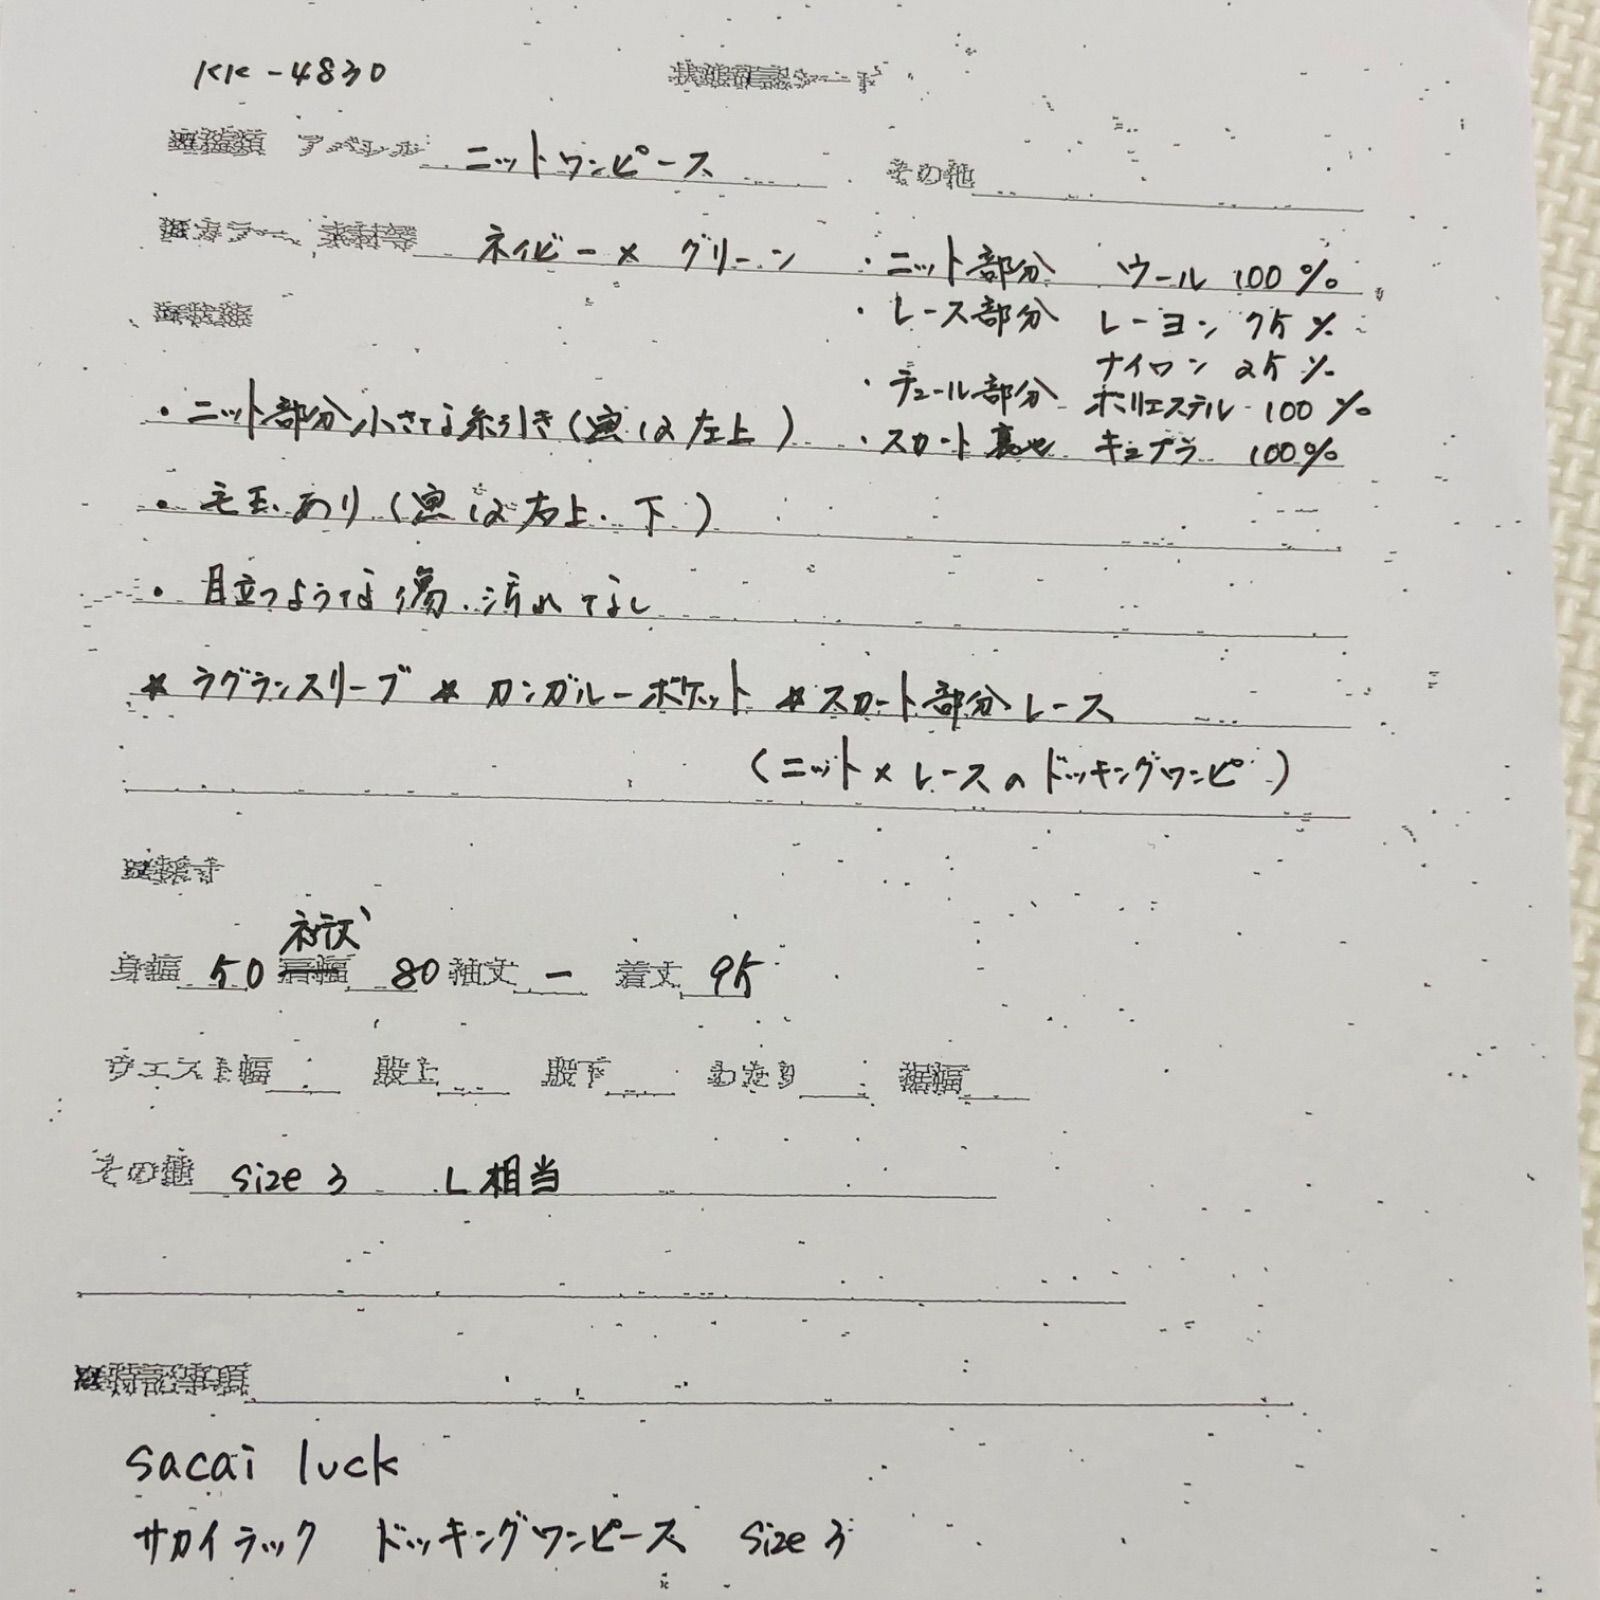 KK-4830 状態確認シート
■種類 アパレル ニットワンピース その他
■カラー、素材等 ネイビー×グリーン ・ニット部分 ウール 100%
■状態 ・レース部分 レーヨン 75%
ナイロン 25%
・チュール部分 ポリエステル 100%
・ニット部分小さな糸引き(画像は左上) ・スカート裏地 キュプラ 100%
・毛玉あり(画像は右上・下)
・目立つような傷・汚れてなし
★ラグランスリーブ ★カンガルーポケット ★スカート部分レース
(ニット×レースのドッキングワンピ)
■採寸
裄丈
身幅 50 肩幅 80 袖丈 ー 着丈 95
ウエスト幅 股上 股下 わたり 裾幅
その他 size 3 L相当
■特記事項
sacai luck
サカイラック ドッキングワンピース size 3